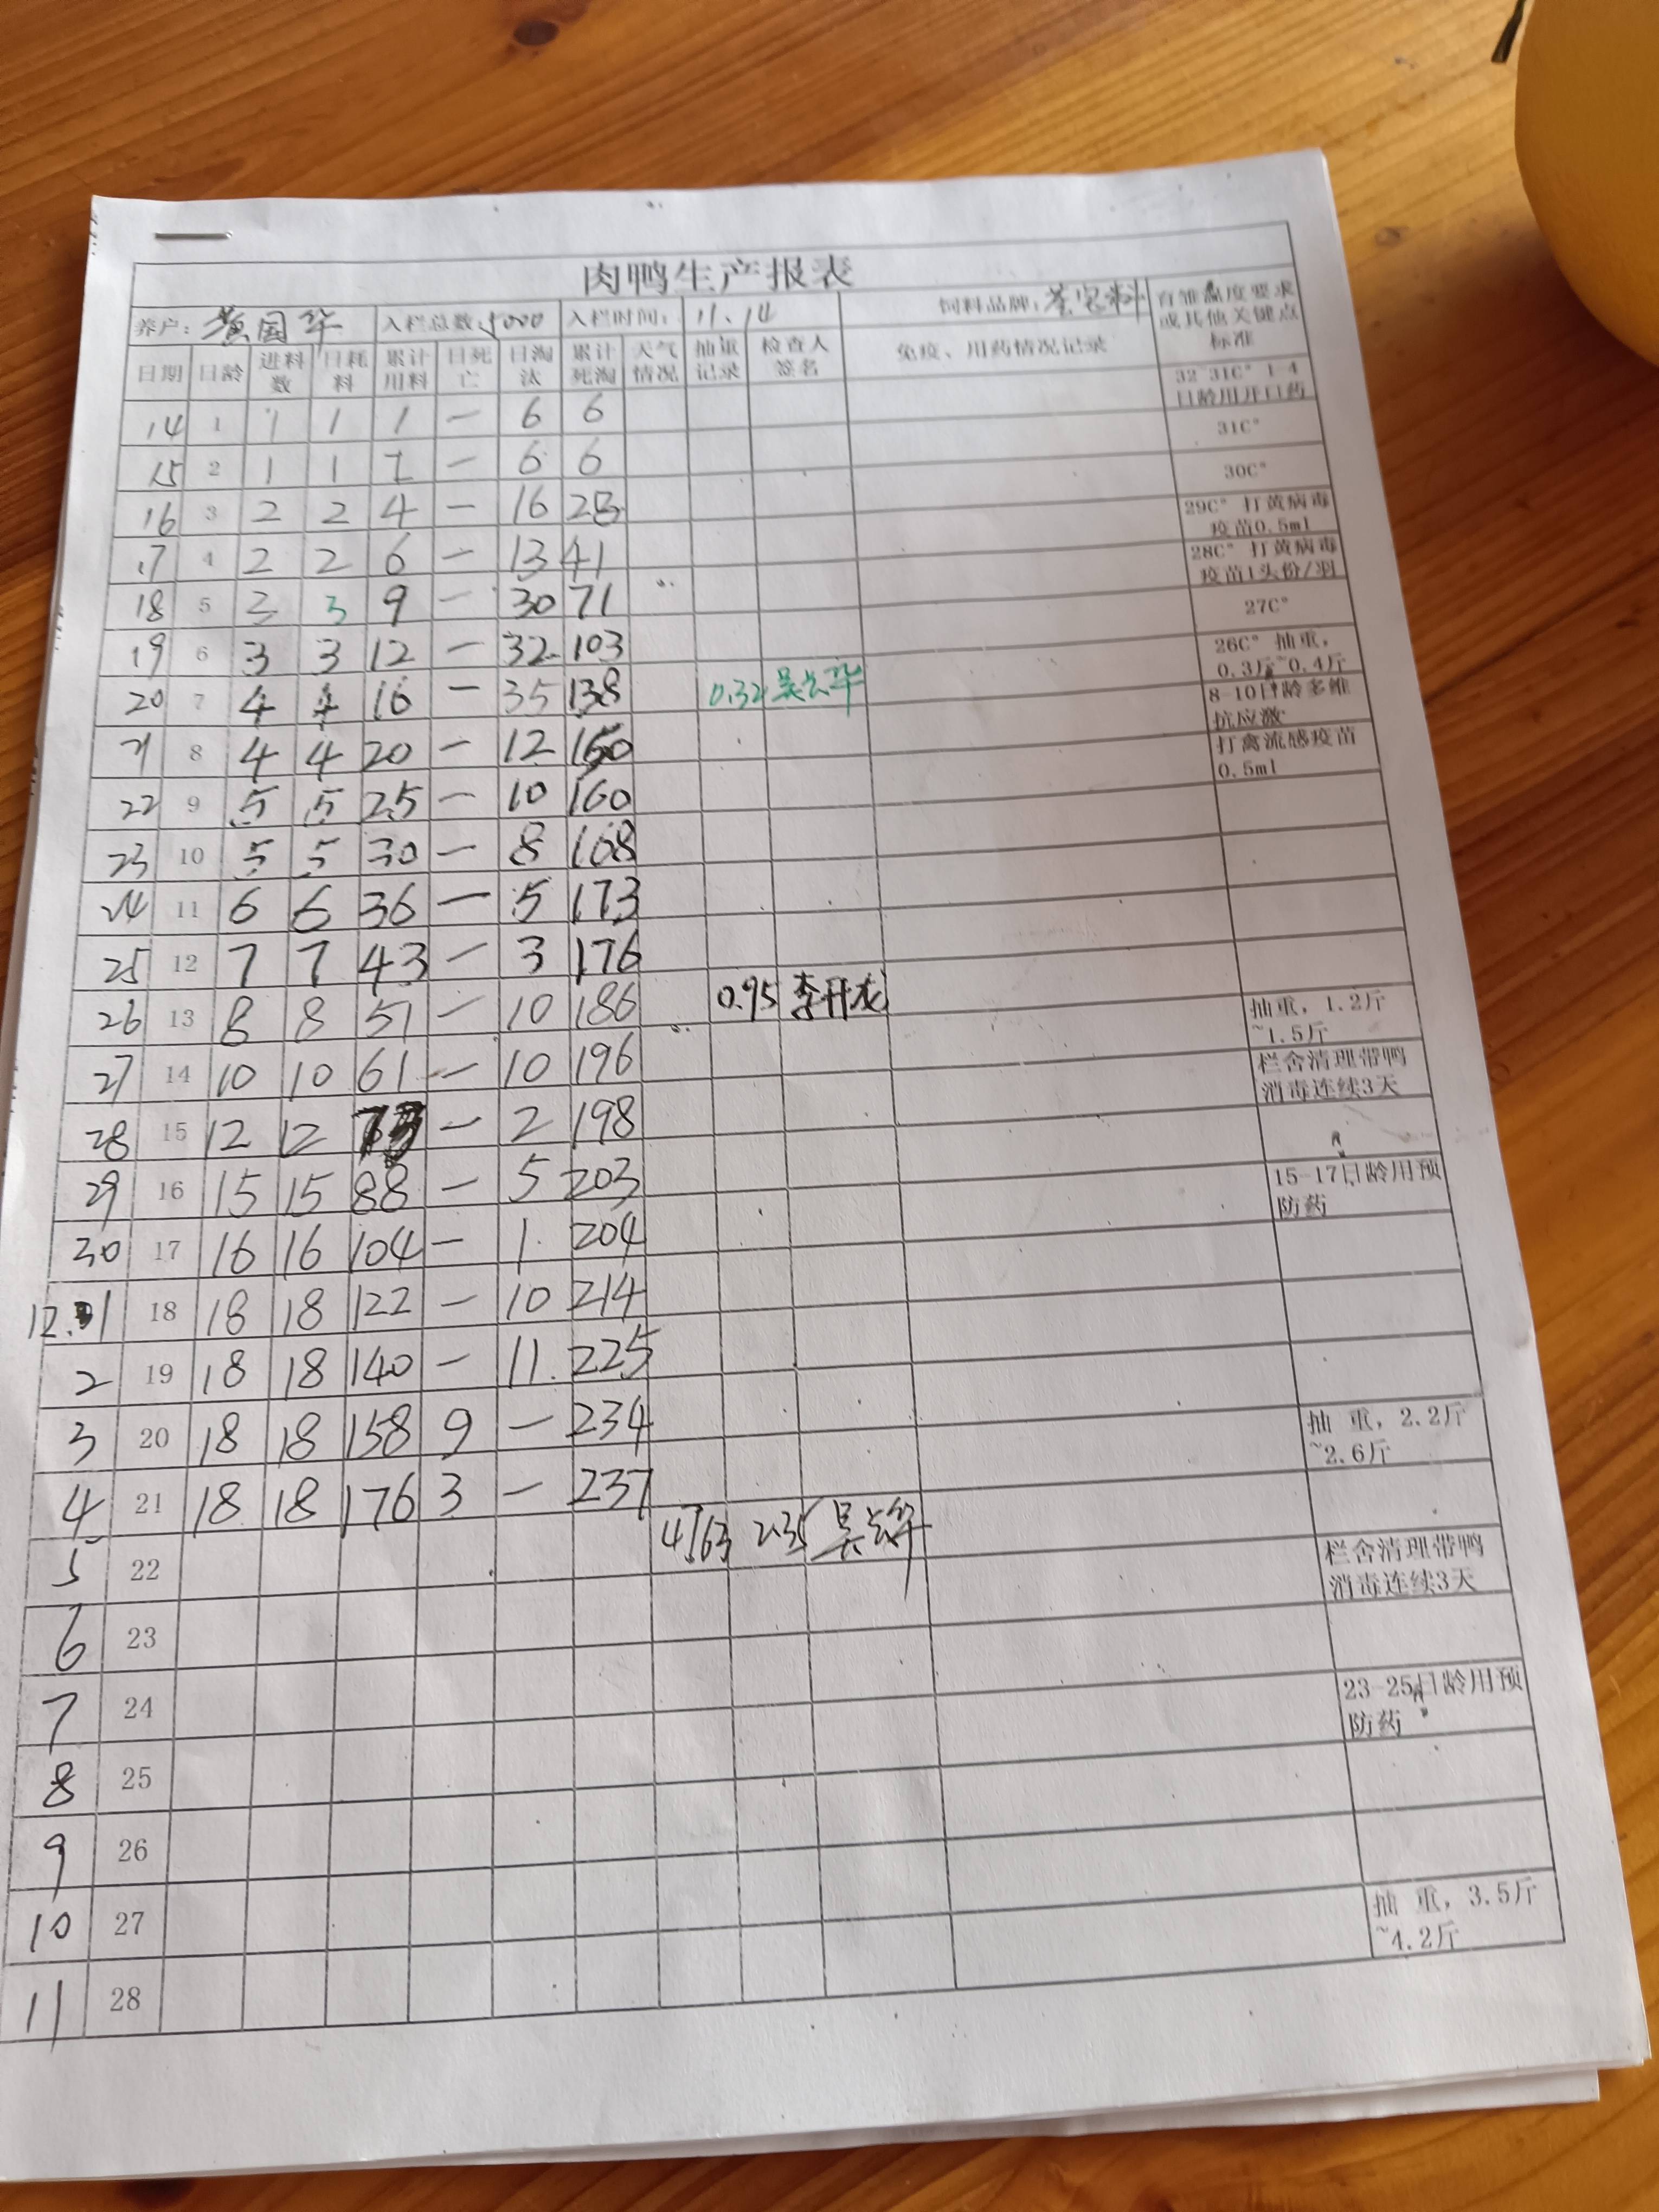 肉鸭生产报表
养户: 黄国华 入栏总数: 5000 入栏时间: 11.14 饲料品牌: 育雏温度要求或其他关键点标准
日期 日龄 进料数 日耗料 累计用料 日死亡 日淘汰 累计死淘 天气情况 抽重记录 检查人签名 免疫、用药情况记录
14 1 1 1 1 — 6 6 32-31C° 1-4日龄用开口药
15 2 1 1 — 6 6 31C°
16 3 2 2 4 — 16 28 30C°
17 4 2 2 6 — 13 41 29C° 打黄病毒疫苗0.5ml
18 5 3 3 9 — 30 71 28C° 打黄病毒疫苗1头份/羽
19 6 3 3 12 — 32 103 27C°
20 7 4 4 16 — 35 138 0.32 26C° 抽重, 0.3斤~0.4斤
21 8 4 4 20 — 12 150 8-10日龄多维抗应激
22 9 5 5 25 — 10 160 打禽流感疫苗0.5ml
23 10 5 5 30 — 8 168
24 11 6 6 36 — 5 173
25 12 7 7 43 — 3 176
26 13 8 8 51 — 10 186 0.95 李开龙
27 14 10 10 61 — 10 196 抽重, 1.2斤~1.5斤
28 15 12 12 73 — 2 198 栏舍清理带鸭消毒连续3天
29 16 15 15 88 — 5 203
30 17 16 16 104 — 1 204 15-17日龄用预防药
12.1 18 18 18 122 — 10 214
2 19 18 18 140 — 11 225
3 20 18 18 158 9 — 234
4 21 18 18 176 3 — 237 抽 重, 2.2斤~2.6斤
5 22 4763 2.35
6 23 栏舍清理带鸭消毒连续3天
7 24
8 25 23-25日龄用预防药
9 26
10 27
11 28 抽 重, 3.5斤~4.2斤